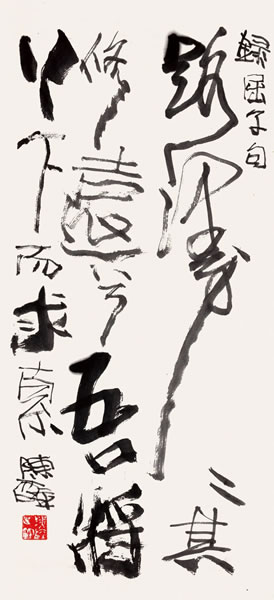 錄屈子句
路漫〻其
修遠兮吾將
上下而求索
陳醉